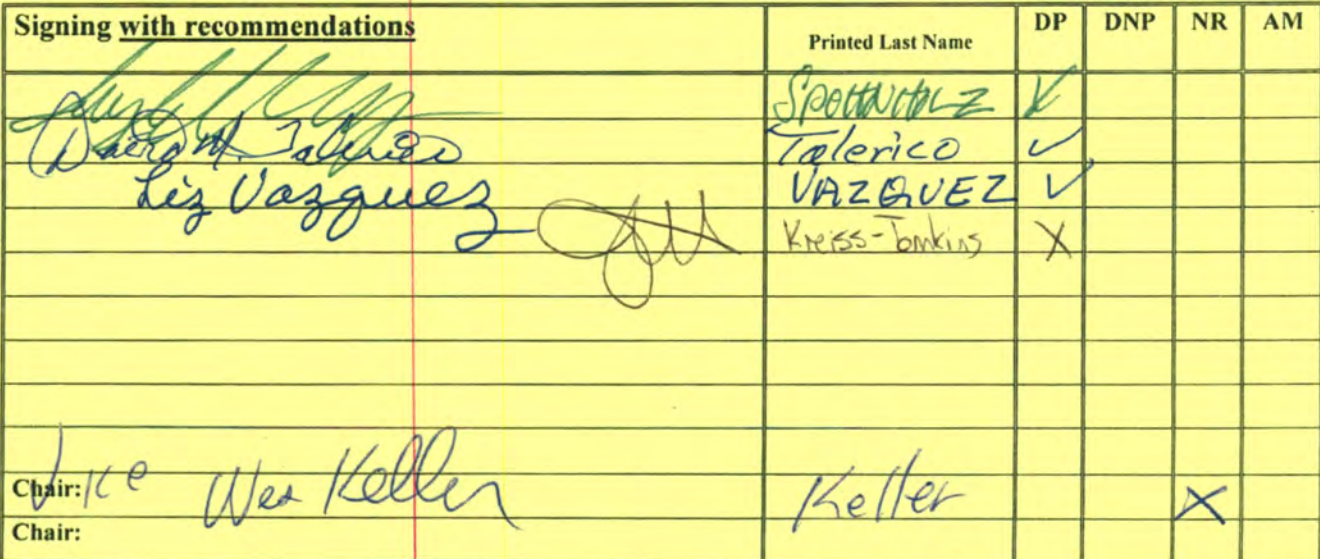 Signing with recommendations Printed Last Name DP DNP NR AM
SPOHNHOLZ ✓
David M. Talerico Talerico ✓
Liz Vazquez VAZQUEZ ✓
Kreiss-Tomkins X
Chair: Vice Wes Keller Keller X
Chair: